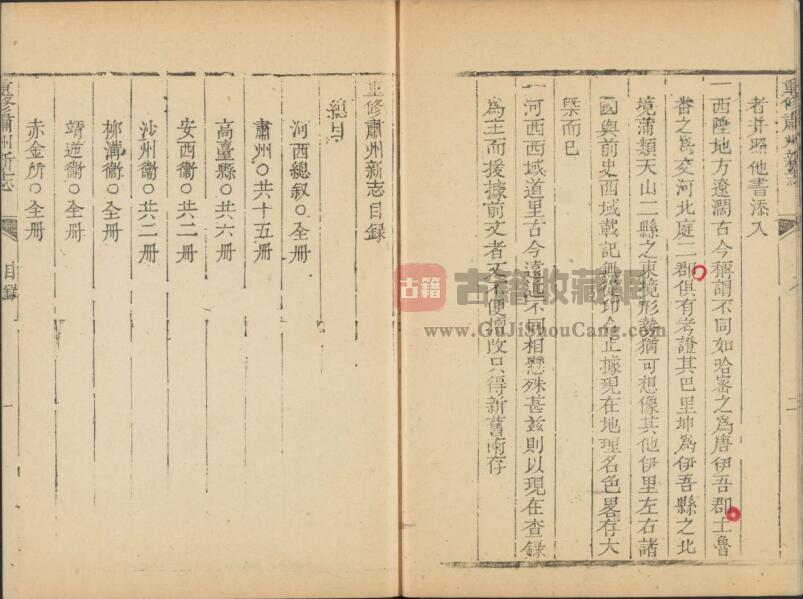 重修肅州新志
二
者并照他書添入
一西陲地方遼濶古今稱謂不同如哈密之爲唐伊吾郡土魯
番之爲交河北庭二郡俱有考證其巴里坤爲伊吾縣之北
境蒲類天山二縣之東境形勢猶可想像其他伊里左右諸
國與前史西域載記無從印合止據現在地理名色畧存大
槩而已
一河西西域道里古今遠近不同相懸殊甚茲則以現在查錄
爲主而援據前文者又不便擅改只得新舊兩存
重修肅州新志目録
總目
河西總叙○全册
肅州○共十五册
高臺縣○共六册
安西衞○共二册
沙州衞○共二册
柳溝衞○全册
靖逆衞○全册
赤金所○全册
重修肅州新志
目錄
一
古籍
古籍收藏網
www.GuJiShouCang.com